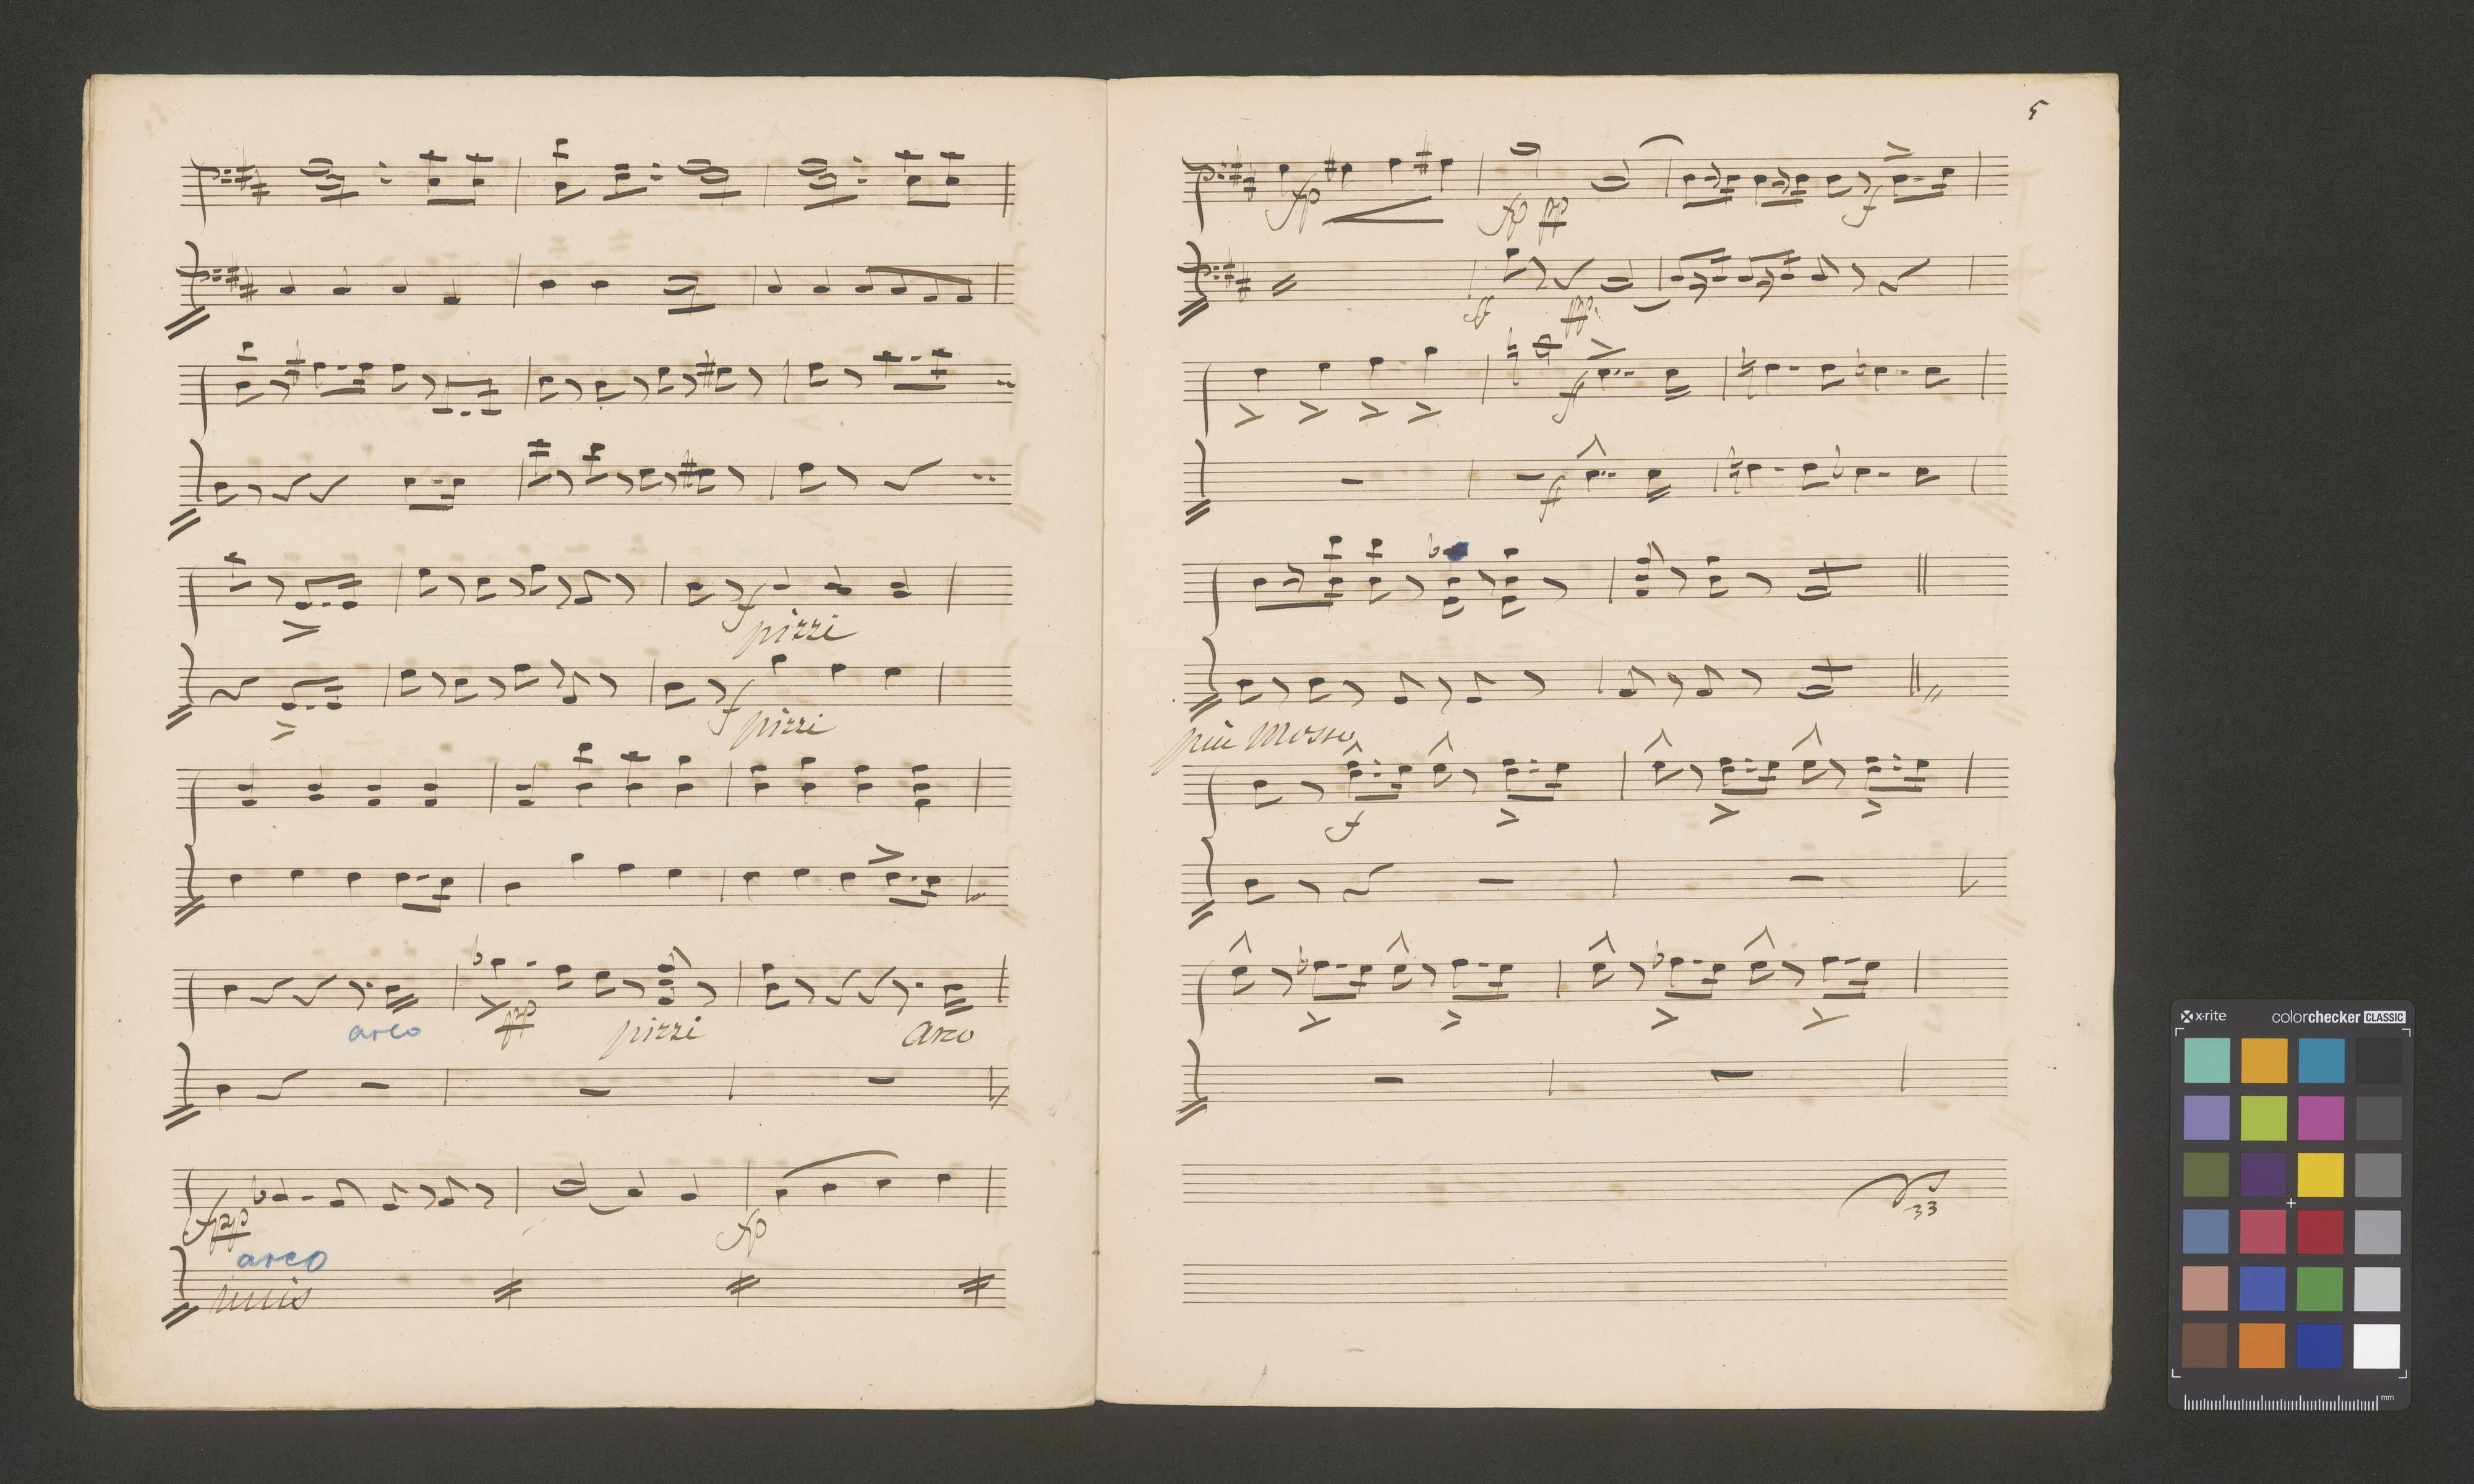 pizzi
pizzi
f
f
pp
arco
pizzi
arco
fpp
fp
arco
unis
5
fp
fp pp
f
ff
pp.
ff
f
più mosso
f
33
x-rite
colorchecker CLASSIC
mm